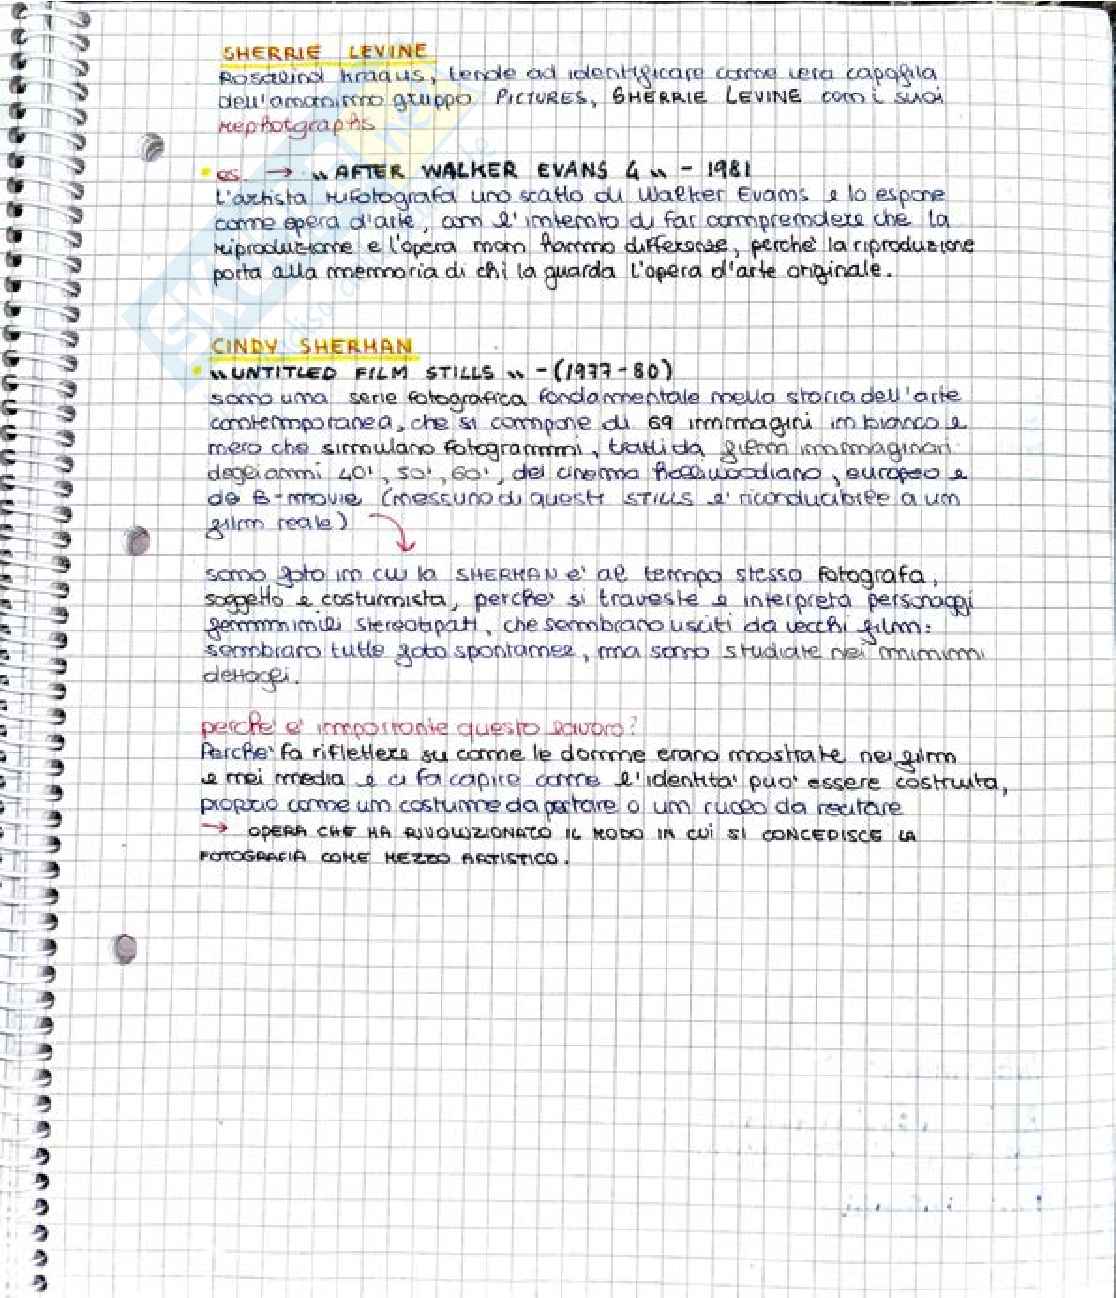 SHERRIE LEVINE
Rosalind Kraaus, tende ad identificare come vera capofila
dell'anonimo gruppo PICTURES, SHERRIE LEVINE con i suoi
rephotgraphs
• es. → "AFTER WALKER EVANS 4" - 1981
L'artista rifotografa uno scatto di Walker Evans e lo espone
come opera d'arte, con l'intento di far comprendere che la
riproduzione e l'opera non hanno differenze, perché la riproduzione
porta alla memoria di chi la guarda l'opera d'arte originale.
CINDY SHERMAN
• "UNTITLED FILM STILLS" - (1977-80)
sono una serie fotografica fondamentale nella storia dell'arte
contemporanea, che si compone di 69 immagini in bianco e
nero che simulano fotogrammi, tratti da film immaginari
degli anni 40', 50', 60', del cinema hollywoodiano, europeo e
da B-movie (nessuno di questi STILLS e' riconducibile a un
film reale)
sono foto in cui la SHERMAN e' al tempo stesso fotografa,
soggetto e costumista, perche' si traveste e interpreta personaggi
femminili stereotipati, che sembrano usciti da vecchi film:
sembrano tutte foto spontanee, ma sono studiate nei minimi
dettagli.
perche' e' importante questo lavoro?
Perche' fa riflettere su come le donne erano mostrate nei film
e nei media e ci fa capire come l'identita' puo' essere costruita,
proprio come un costume da portare o un ruolo da recitare
→ OPERA CHE HA RIVOLUZIONATO IL MODO IN CUI SI CONCEPISCE LA
FOTOGRAFIA COME MEZZO ARTISTICO.